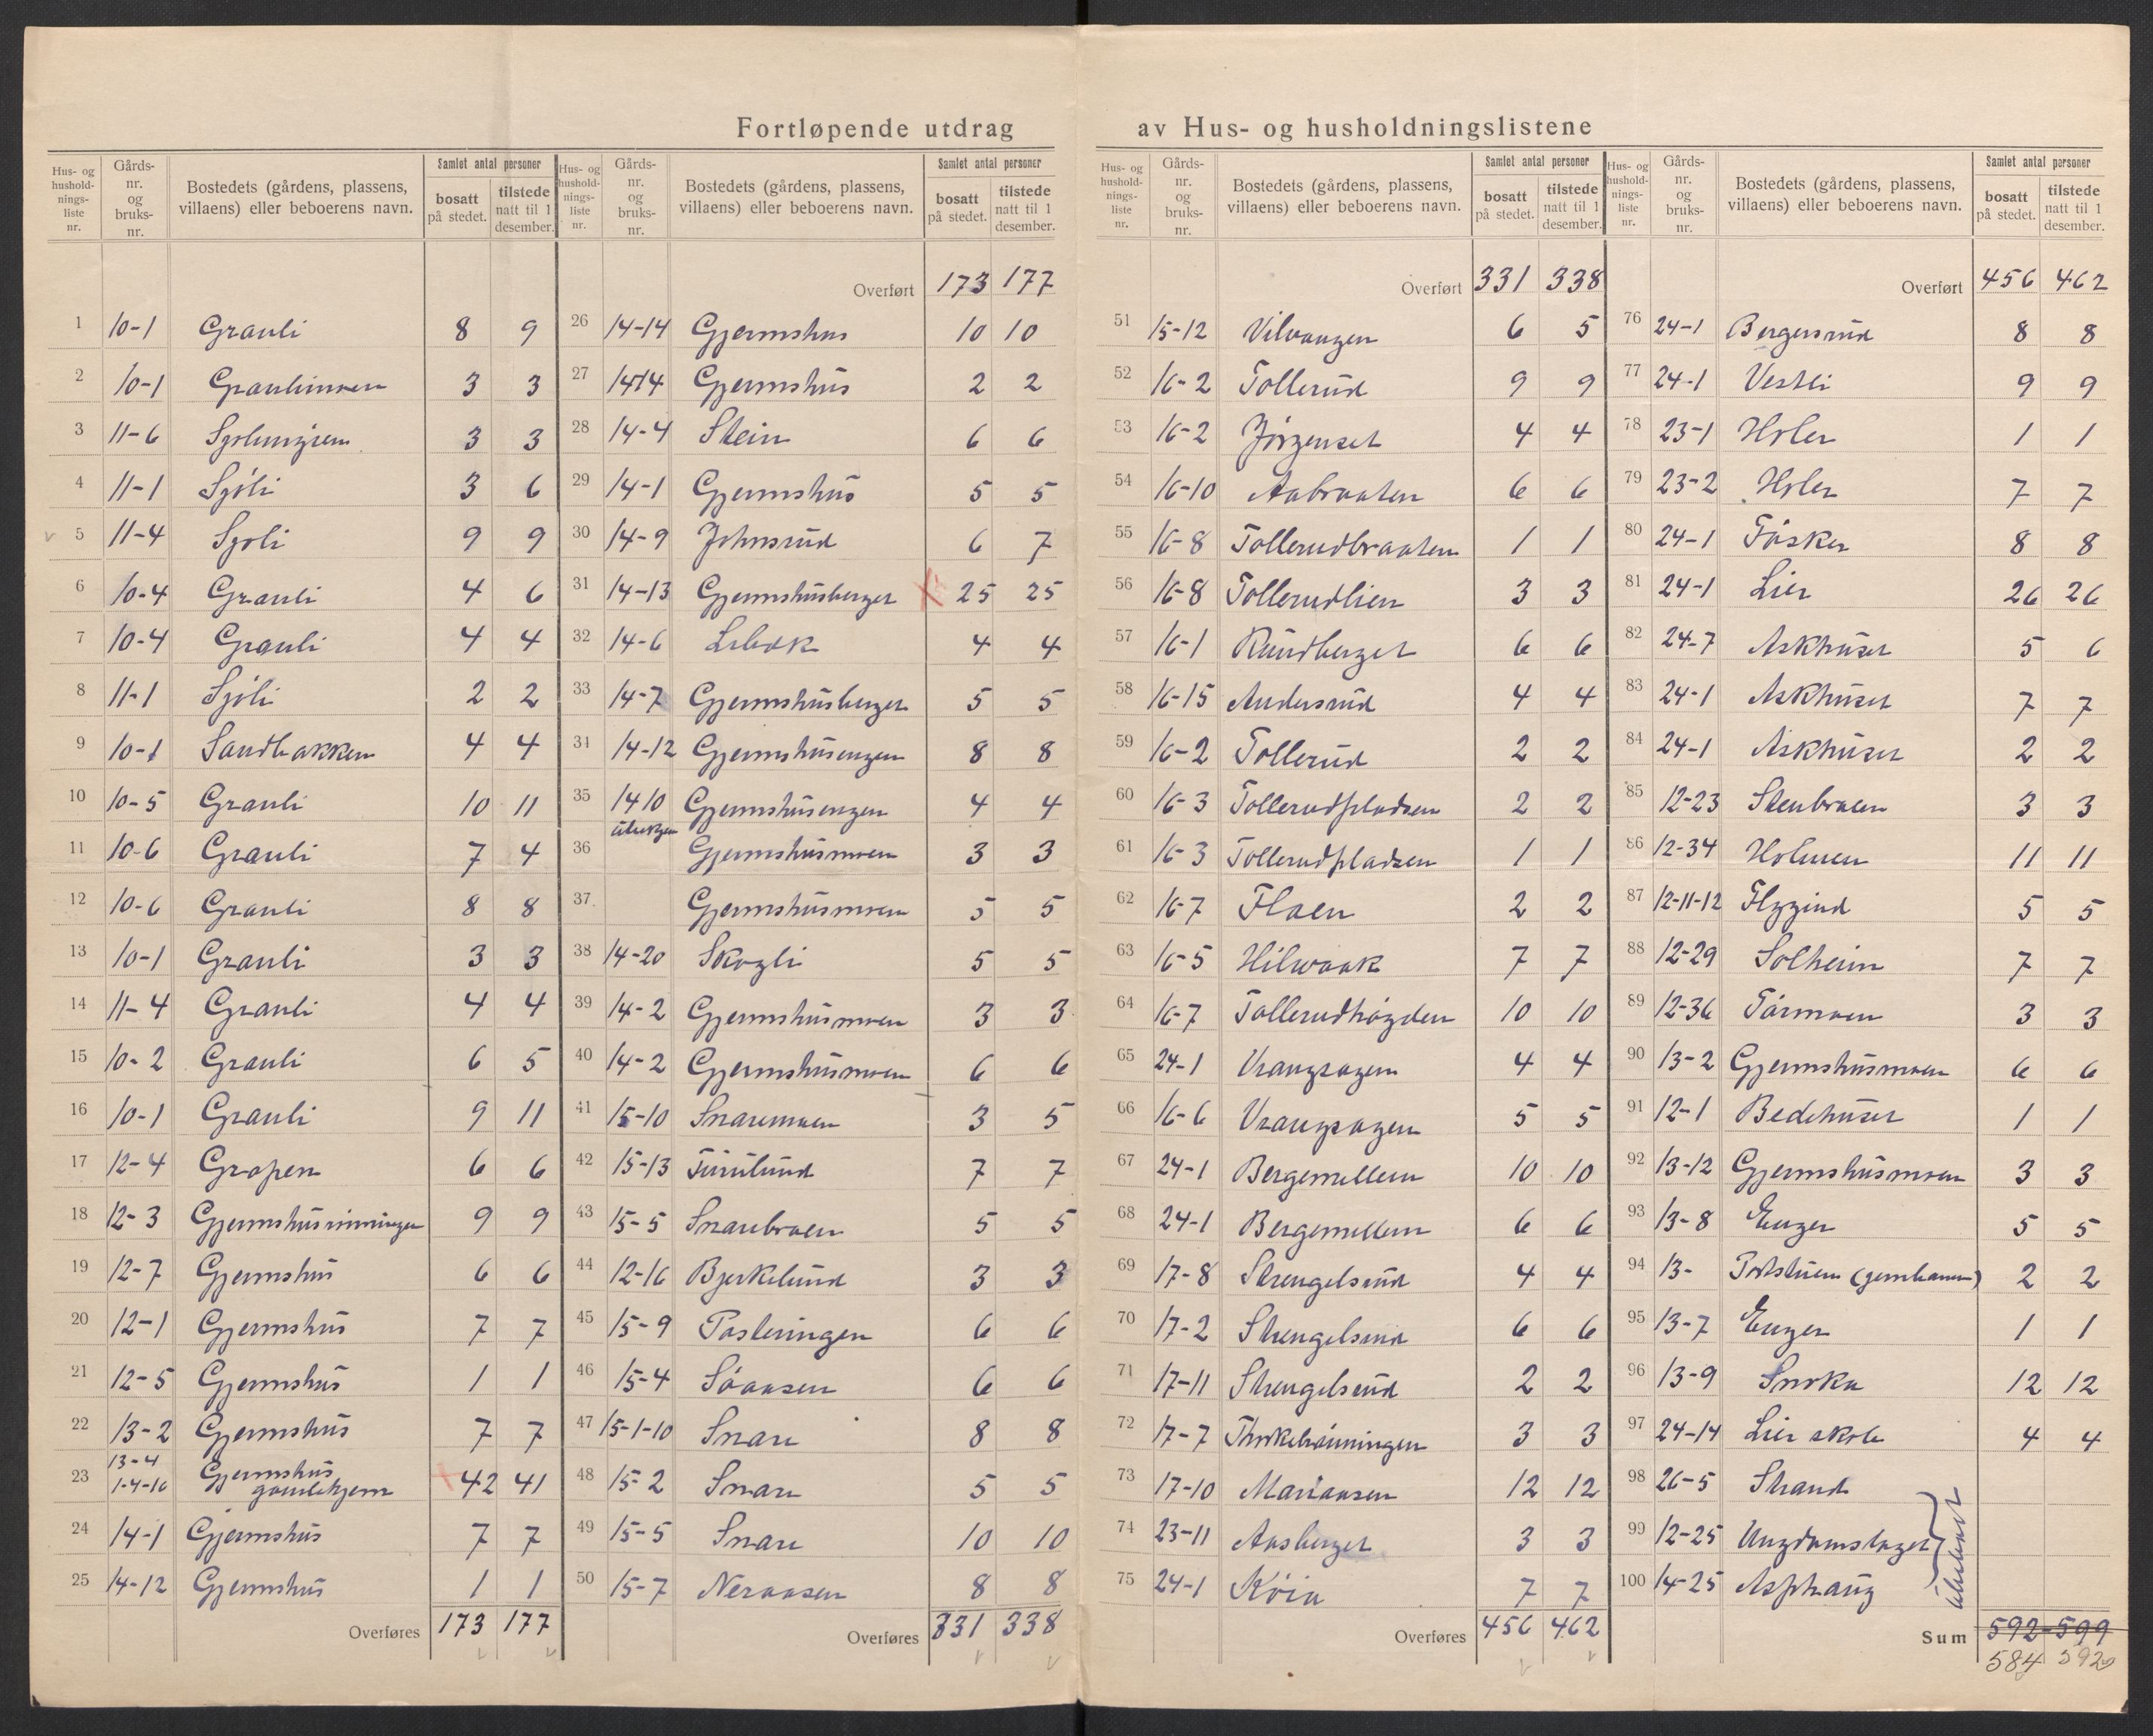 Fortløpende utdrag av Hus- og husholdningslistene
Hus- og hushold-nings-liste nr. Gårds-nr. og bruks-nr. Bostedets (gårdens, plassens, villaens) eller beboerens navn. Samlet antal personer bosatt på stedet. tilstede natt til 1 desember.
1 10-1 Grauli 8 9
2 10-1 Graulimoen 3 3
3 11-6 3 3
4 11-1 Sjøli 3 6
5 11-4 Sjøli 9 9
6 10-4 Grauli 4 6
7 10-4 Grauli 4 4
8 11-1 Sjøli 2 2
9 10-1 Sandbakken 4 4
10 10-5 Grauli 10 11
11 10-6 Grauli 7 4
12 10-6 Grauli 8 8
13 10-1 Grauli 3 3
14 11-4 Grauli 4 4
15 10-2 Grauli 6 5
16 10-1 Grauli 9 11
17 12-4 Gropen 6 6
18 12-3 Gjermshusrønningen 9 9
19 12-7 Gjermshus 6 6
20 12-1 Gjermshus 7 7
21 12-5 Gjermshus 1 1
22 13-2 Gjermshus 7 7
23 13-4 1-4-16 Gjermshus gamlehjem 42 41
24 14-1 Gjermshus 7 7
25 14-12 Gjermshus 1 1
Overføres 173 177
Hus- og hushold-nings-liste nr. Gårds-nr. og bruks-nr. Bostedets (gårdens, plassens, villaens) eller beboerens navn. Samlet antal personer bosatt på stedet. tilstede natt til 1 desember.
Overført 173 177
26 14-14 Gjermshus 10 10
27 14-14 Gjermshus 2 2
28 14-4 Stein 6 6
29 14-1 Gjermshus 5 5
30 14-9 Johnsrud 6 7
31 14-13 Gjermshusberget 25 25
32 14-6 4 4
33 14-7 Gjermshusberget 5 5
34 14-12 Gjermshusengen 8 8
35 14 10 Gjermshusengen 4 4
36 Gjermshusmoen 3 3
37 Gjermshusmoen 5 5
38 14-20 Skogli 5 5
39 14-2 Gjermshusmoen 3 3
40 14-2 Gjermshusmoen 6 6
41 15-10 Snaremoen 3 5
42 15-13 Furulund 7 7
43 15-5 Snarebroen 5 5
44 12-16 Bjerkelund 3 3
45 15-9 Pasteringen 6 6
46 15-4 Søaasen 6 6
47 15-1-10 Snare 8 8
48 15-2 Snare 5 5
49 15-5 Snare 10 10
50 15-7 Neraasen 8 8
Overføres 331 338
Hus- og hushold-nings-liste nr. Gårds-nr. og bruks-nr. Bostedets (gårdens, plassens, villaens) eller beboerens navn. Samlet antal personer bosatt på stedet. tilstede natt til 1 desember.
Overført 331 338
51 15-12 Vilvangen 6 5
52 16-2 Tollerud 9 9
53 16-2 Jørgenset 4 4
54 16-10 Aabraaten 6 6
55 16-8 Tollerudbraaten 1 1
56 16-8 Tollerudlien 3 3
57 16-1 Rundberget 6 6
58 16-15 Andersrud 4 4
59 16-2 Tollerud 2 2
60 16-3 Tollerudpladsen 2 2
61 16-3 Tollerudpladsen 1 1
62 16-7 Floen 2 2
63 16-5 Hilwaak 7 7
64 16-7 Tollerudhøgden 10 10
65 24-1 Vrangsagen 4 4
66 16-6 Vrangsagen 5 5
67 24-1 Bergemellem 10 10
68 24-1 Bergemellem 6 6
69 17-8 Strengelsrud 4 4
70 17-2 Strengelsrud 6 6
71 17-11 Strengelsrud 2 2
72 17-7 Thorkelrønningen 3 3
73 17-10 Mariaasen 12 12
74 23-11 Aasberget 3 3
75 24-1 Køia 7 7
Overføres 456 462
Hus- og hushold-nings-liste nr. Gårds-nr. og bruks-nr. Bostedets (gårdens, plassens, villaens) eller beboerens navn. Samlet antal personer bosatt på stedet. tilstede natt til 1 desember.
Overført 456 462
76 24-1 Bergersrud 8 8
77 24-1 Vestli 9 9
78 23-1 Holer 1 1
79 23-2 Holer 7 7
80 24-1 Føsker 8 8
81 24-1 Lier 26 26
82 24-7 Askhuset 5 6
83 24-1 Askhuset 7 7
84 24-1 Askhuset 2 2
85 12-23 Stenbroen 3 3
86 12-34 Holmen 11 11
87 12-11-12 Flygind 5 5
88 12-29 Solheim 7 7
89 12-36 Tørmoen 3 3
90 13-2 Gjermshusmoen 6 6
91 12-1 Bedehuset 1 1
92 13-12 Gjermshusmoen 3 3
93 13-8 Enger 5 5
94 13- Portstuen 2 2
95 13-7 Enger 1 1
96 13-9 Snoka 12 12
97 24-14 Lier skole 4 4
98 26-5 Strand
99 12-25 Ungdomslaget
100 14-25 Asphaug
ubebodd
Sum 592-599
584 592